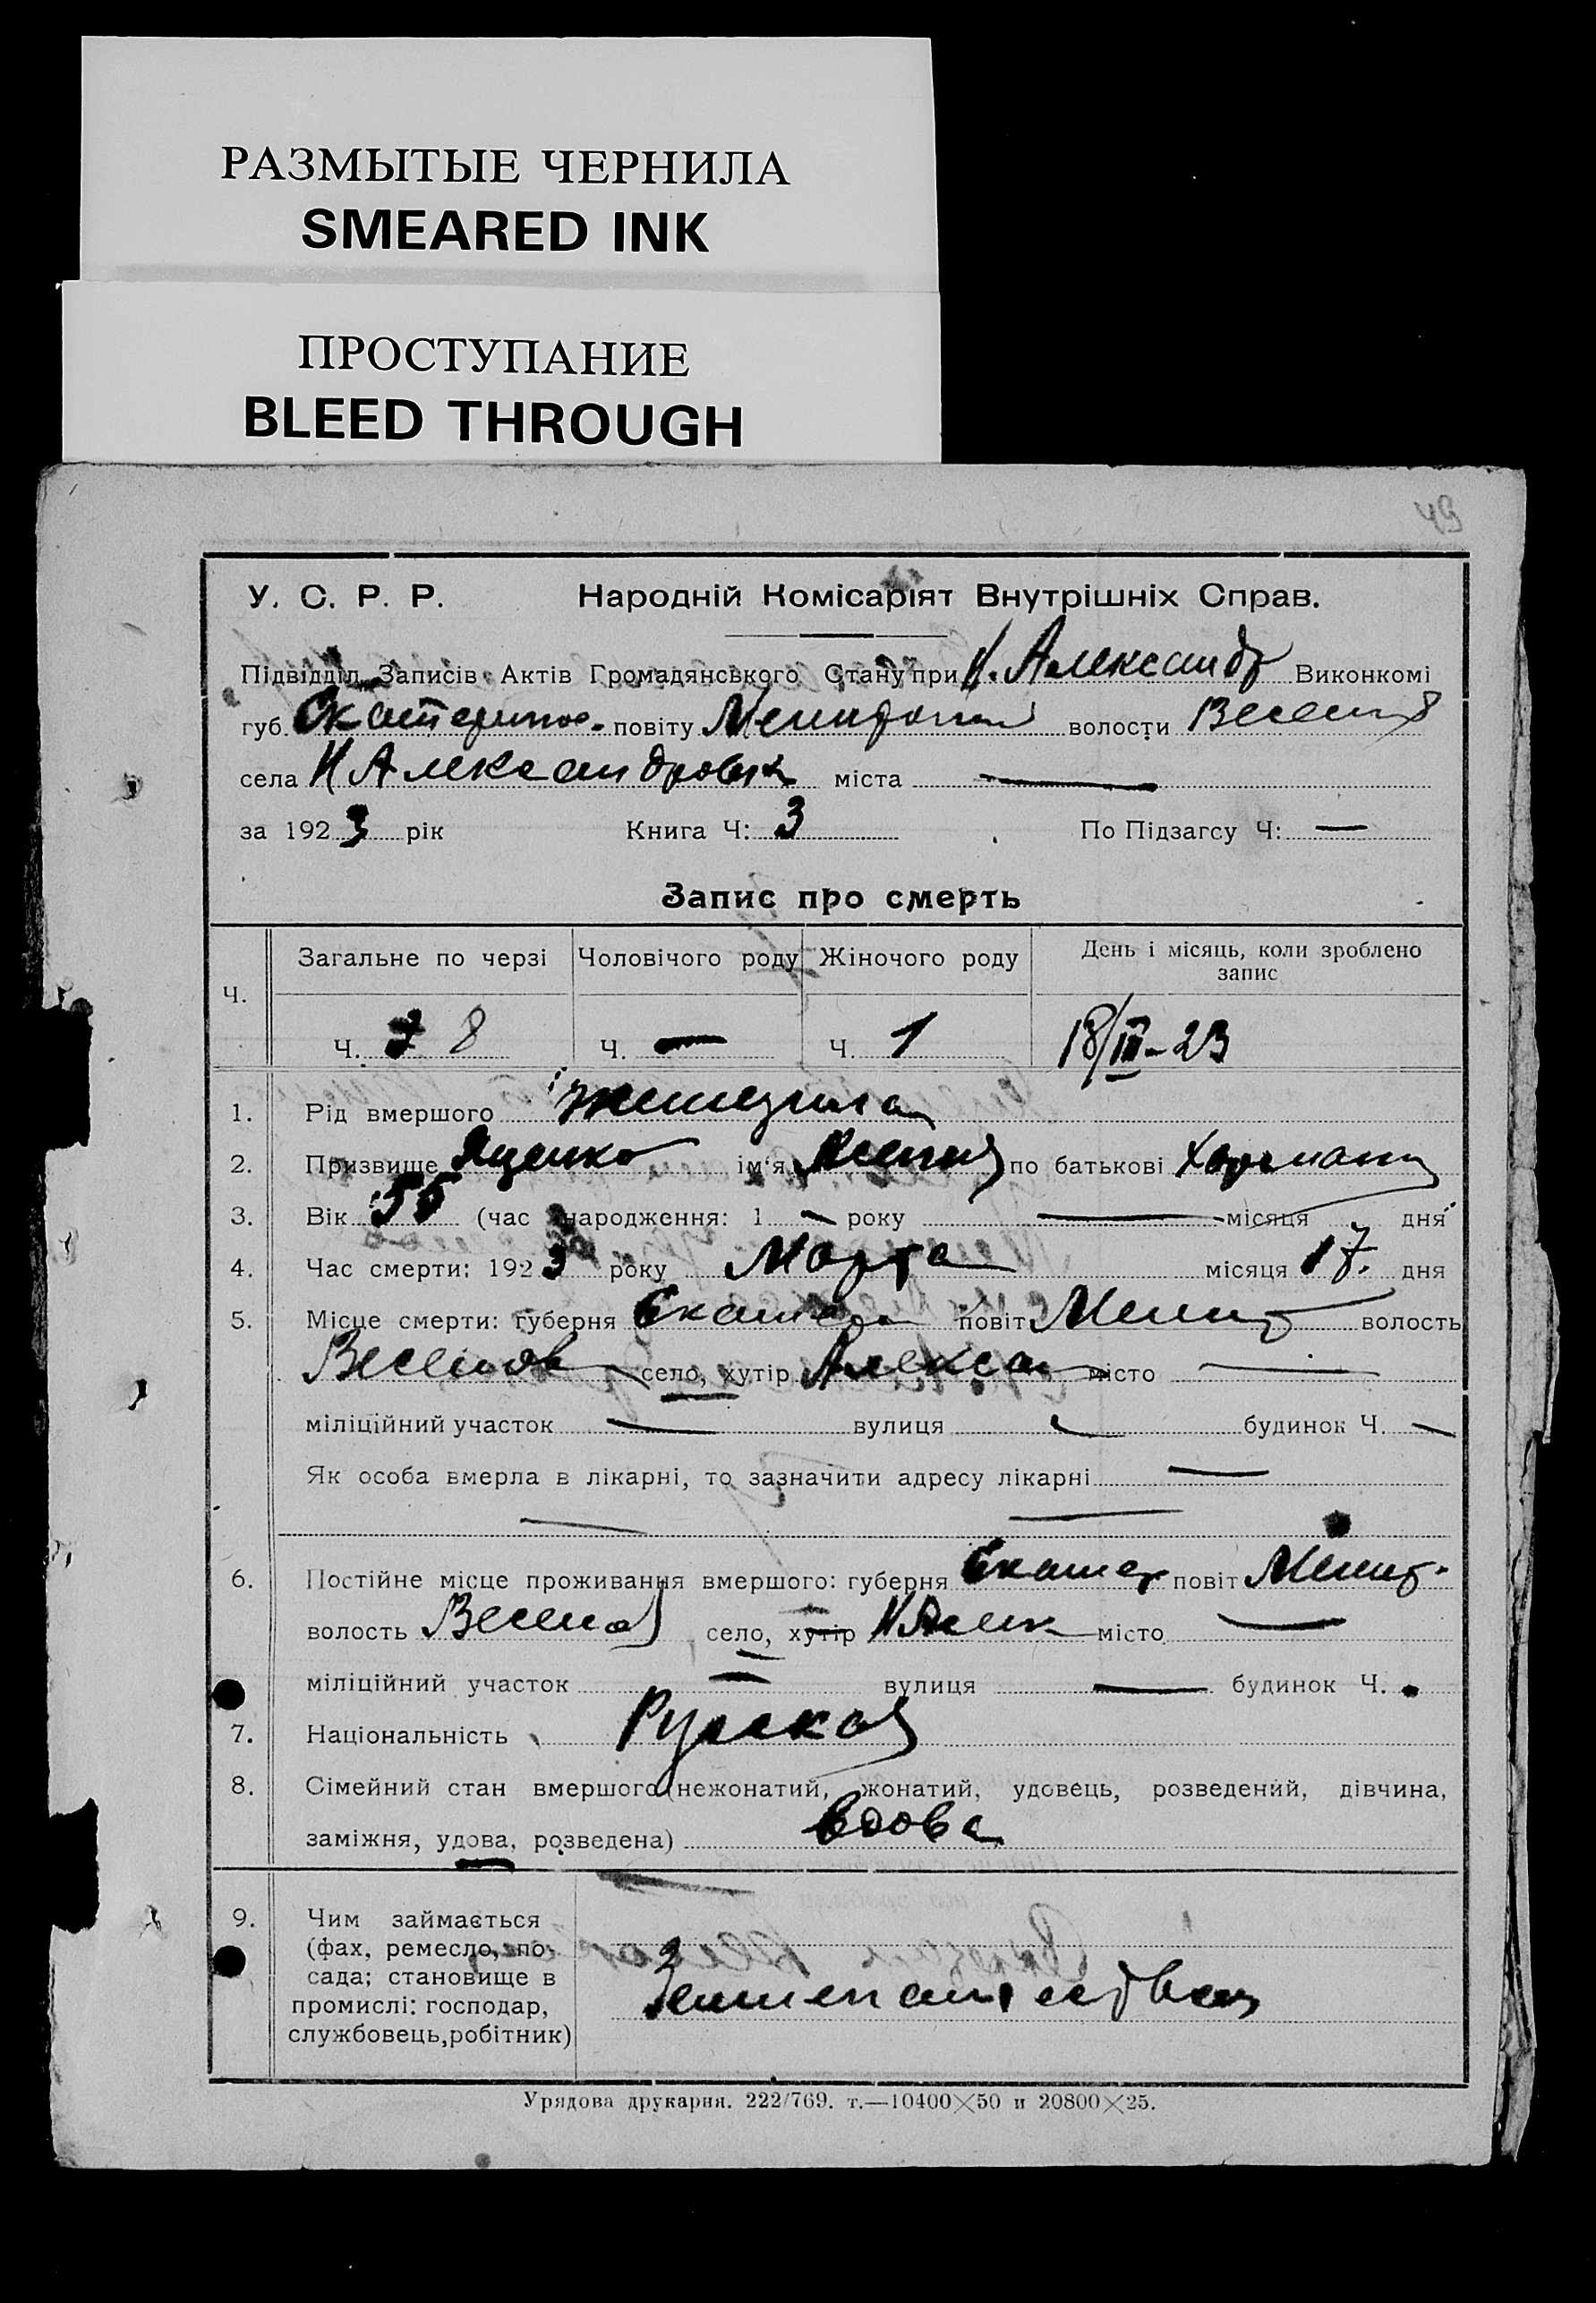 РАЗМЫТЫЕ ЧЕРНИЛА
SMEARED INK
ПРОСТУПАНИЕ
BLEED THROUGH
49
У. С. Р. Р. Народній Комісаріят Внутрішніх Справ.
Підвідділ Записів Актів Громадянського Стану при Н. Александр Виконкомі
губ. Екатерино. повіту Мелитопол волости Весел
села Н Александровка міста —
за 1923 рік Книга Ч: 3 По Підзагсу Ч: —
Запис про смерть
Ч. Загальне по черзі Чоловічого роду Жіночого роду День і місяць, коли зроблено запис
Ч. 8 Ч. — Ч. 1 18/III-23
1. Рід вмершого женщина
2. Призвище Яценко ім'я Ксения по батькові
3. Вік 55 (час народження: 1 — року — місяця дня
4. Час смерти: 1923 року Марта місяця 17. дня
5. Місце смерти: губерня Екатер повіт Мелит волость
Веселов село, хутір Алекса місто —
міліційний участок — вулиця — будинок Ч. —
Як особа вмерла в лікарні, то зазначити адресу лікарні —
— —
6. Постійне місце проживання вмершого: губерня Екатер повіт Мелит.
волость Весело село, хутір Н Алек місто —
міліційний участок — вулиця — будинок Ч.
7. Національність Руская
8. Сімейний стан вмершого (нежонатий, жонатий, удовець, розведений, дівчина,
заміжня, удова, розведена) Вдова
9. Чим займається
(фах, ремесло, по-
сада; становище в
промислі: господар,
службовець, робітник)
Урядова друкарня. 222/769. т.—10400×50 и 20800×25.